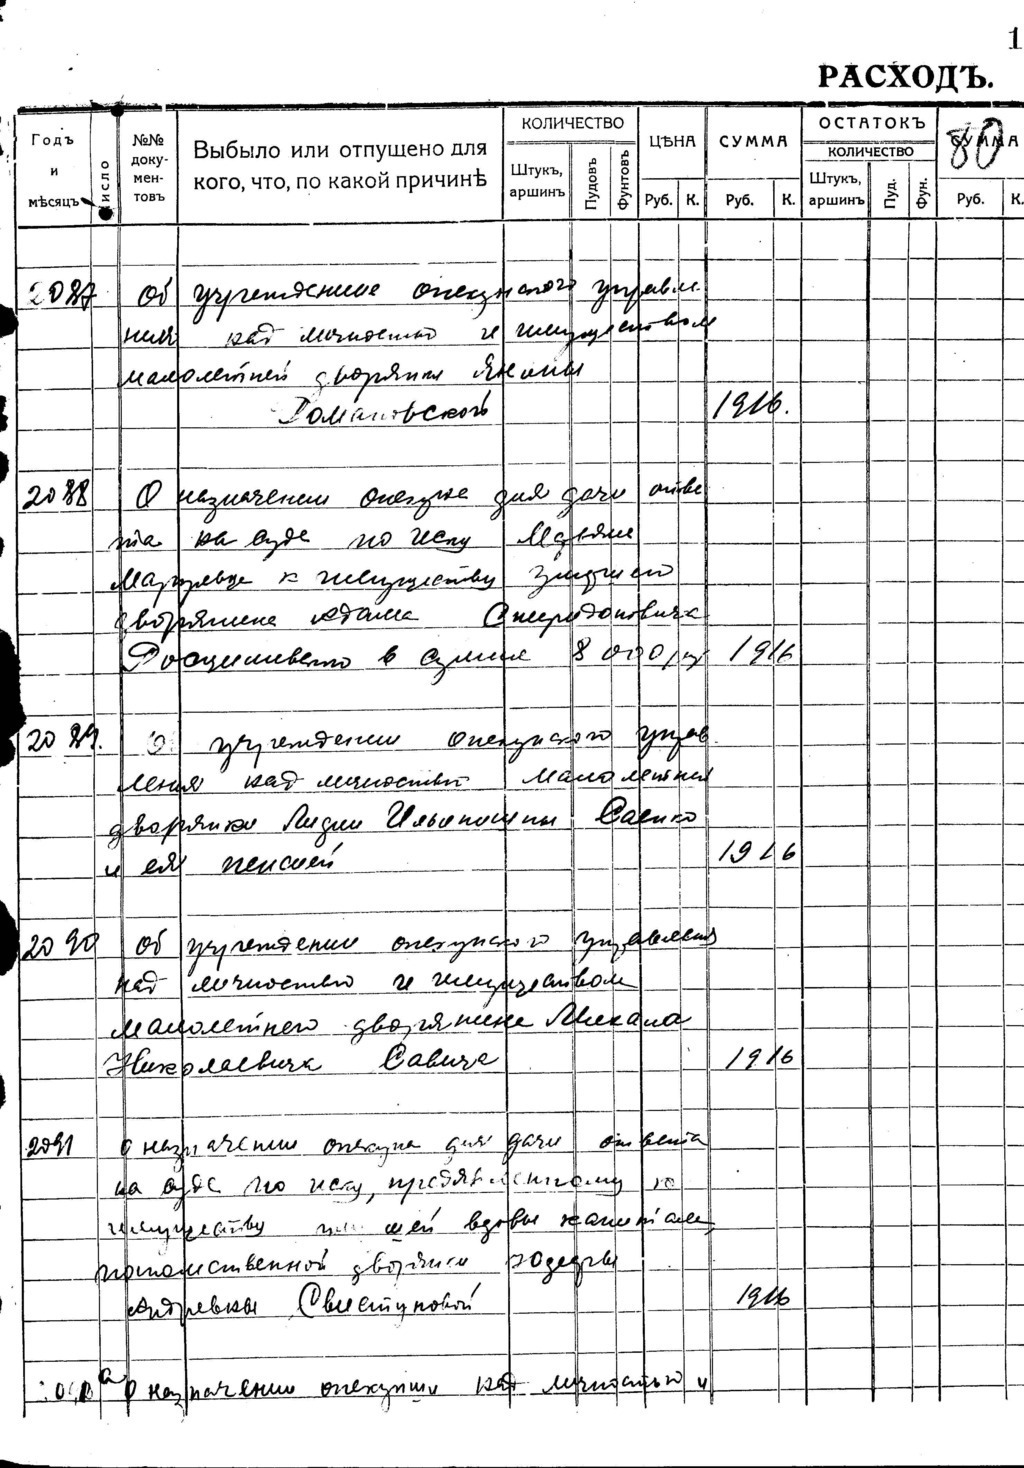 1
РАСХОДЪ.
Годъ и мѣсяцъ
число
№№ доку-мен-товъ
Выбыло или отпущено для кого, что, по какой причинѣ
КОЛИЧЕСТВО
Штукъ, аршинъ
Пудовъ
Фунтовъ
ЦѢНА
Руб. К.
СУММА
Руб. К.
ОСТАТОКЪ
КОЛИЧЕСТВО
Штукъ, аршинъ
Пуд.
Фун.
СУММА
80
Руб. К.
2087 Об учреждение опекунского управле
ния над личностью и имуществом
малолетней дворянки Янины
Романовской 1916.
2088 О назначении опекуна для дачи отве
та на суде по иску
к имуществу
дворянина Адама Спиридоновича
в сумме 8000 1916
2089. О учреждении опекунского управ
ления над личностью малолетней
дворянки Лидии Ильиничны Саенко
и ея пенсией 1916
2090 Об учреждении опекунского управления
над личностью и имуществом
малолетнего дворянина Михаила
Николаевича Савича 1916
2091 О назначении опекуна для дачи ответа
на суде по иску, предъявленному к
имуществу вдовы капитана,
потомственной дворянки
Андреевны Свистуновой 1916
а О назначении опекунши над личностью и